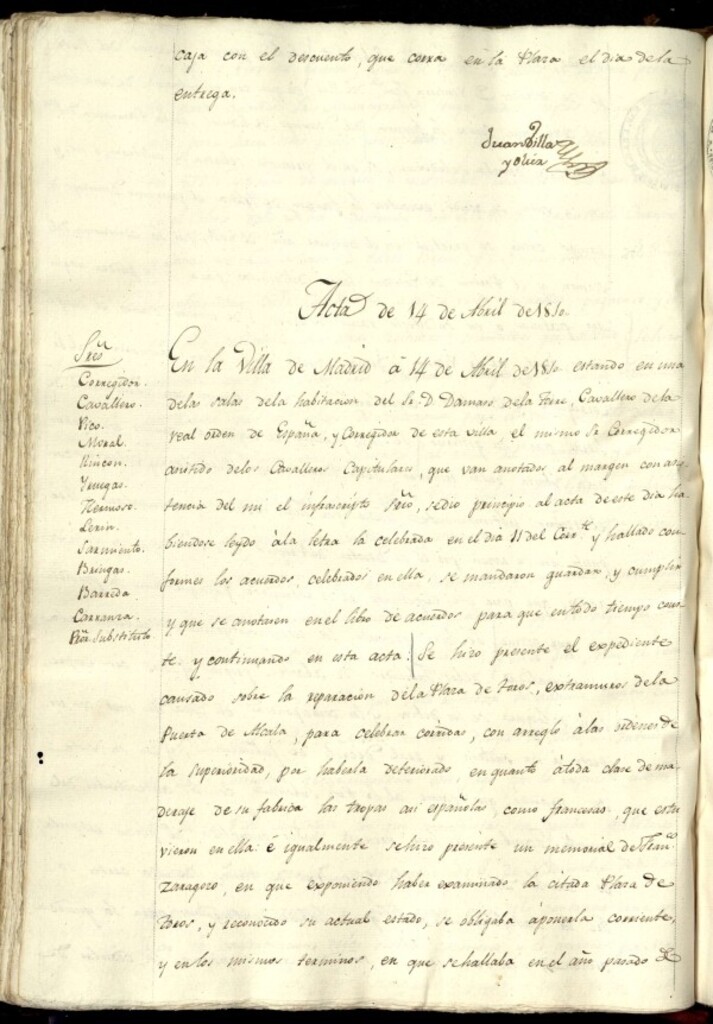 caja con el descuento, que corra en la Plaza el dia de la
entrega.
Juan Villa
y Olier
Acta de 14 de Abril de 1810.
Sres
Corregidor.
Cavallero.
Pico.
Moral.
Rincon.
Yruegas.
Hermoso.
Lerin.
Sarmiento.
Bringas.
Barreda
Carranza.
Ror. Substituto
En la Villa de Madrid á 14 de Abril de 1810. estando en una
delas salas dela habitacion del Sr. D. Damaso dela Torre, Cavallero dela
real orden de España, y Corregidor de esta villa, el mismo Sr Corregidor
asistido delos Cavalleros Capitulares, que van anotados al margen con asis
tencia del mi el infrascripto Srio, sedio principio al acta de este dia ha
biendose leydo àla letra la celebrada en el dia 11 del Corrte. y hallado con
formes los acuerdos, celebrados en ella, se mandaron guardar, y cumplir
y que se anotasen en el libro de acuerdos para que en todo tiempo cons
te: y continuando en esta acta: Se hizo presente el expediente
causado sobre la reparacion dela Plaza de Toros, extramuros dela
Puerta de Alcala, para celebrar corridas, con arreglo àlas ordenes de
la superioridad, por haberla deteriorado, en quanto àtoda clase de ma
deraje de su fabrica las tropas asi españolas, como francesas, que estu
vieron en ella: é igualmente sehizo presente un memorial de Franco.
Zaragoza, en que exponiendo haber examinado la citada Plaza de
Toros, y reconocido su actual estado, se obligaba àponerla corriente,
y en los mismos terminos, en que sehallaba en el año pasado de